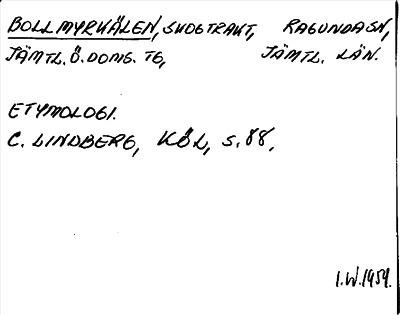 BOLLMYRKÄLEN, SKOGTRAKT, RAGUNDA SN,
JÄMTL. Ö. DOMS. TG, JÄMTL. LÄN.
ETYMOLOGI.
C. LINDBERG, KÖL, S. 88,
I.W. 1959.